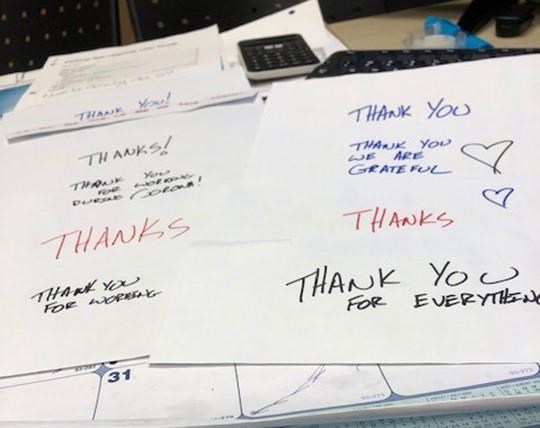 THANK YOU!
THANKS!
THANK YOU
FOR WORKING
DURING CORONA!
THANKS
THANK YOU
FOR WORKING
THANK YOU
THANK YOU
WE ARE
GRATEFUL
THANKS
THANK YOU
FOR EVERYTHING
31